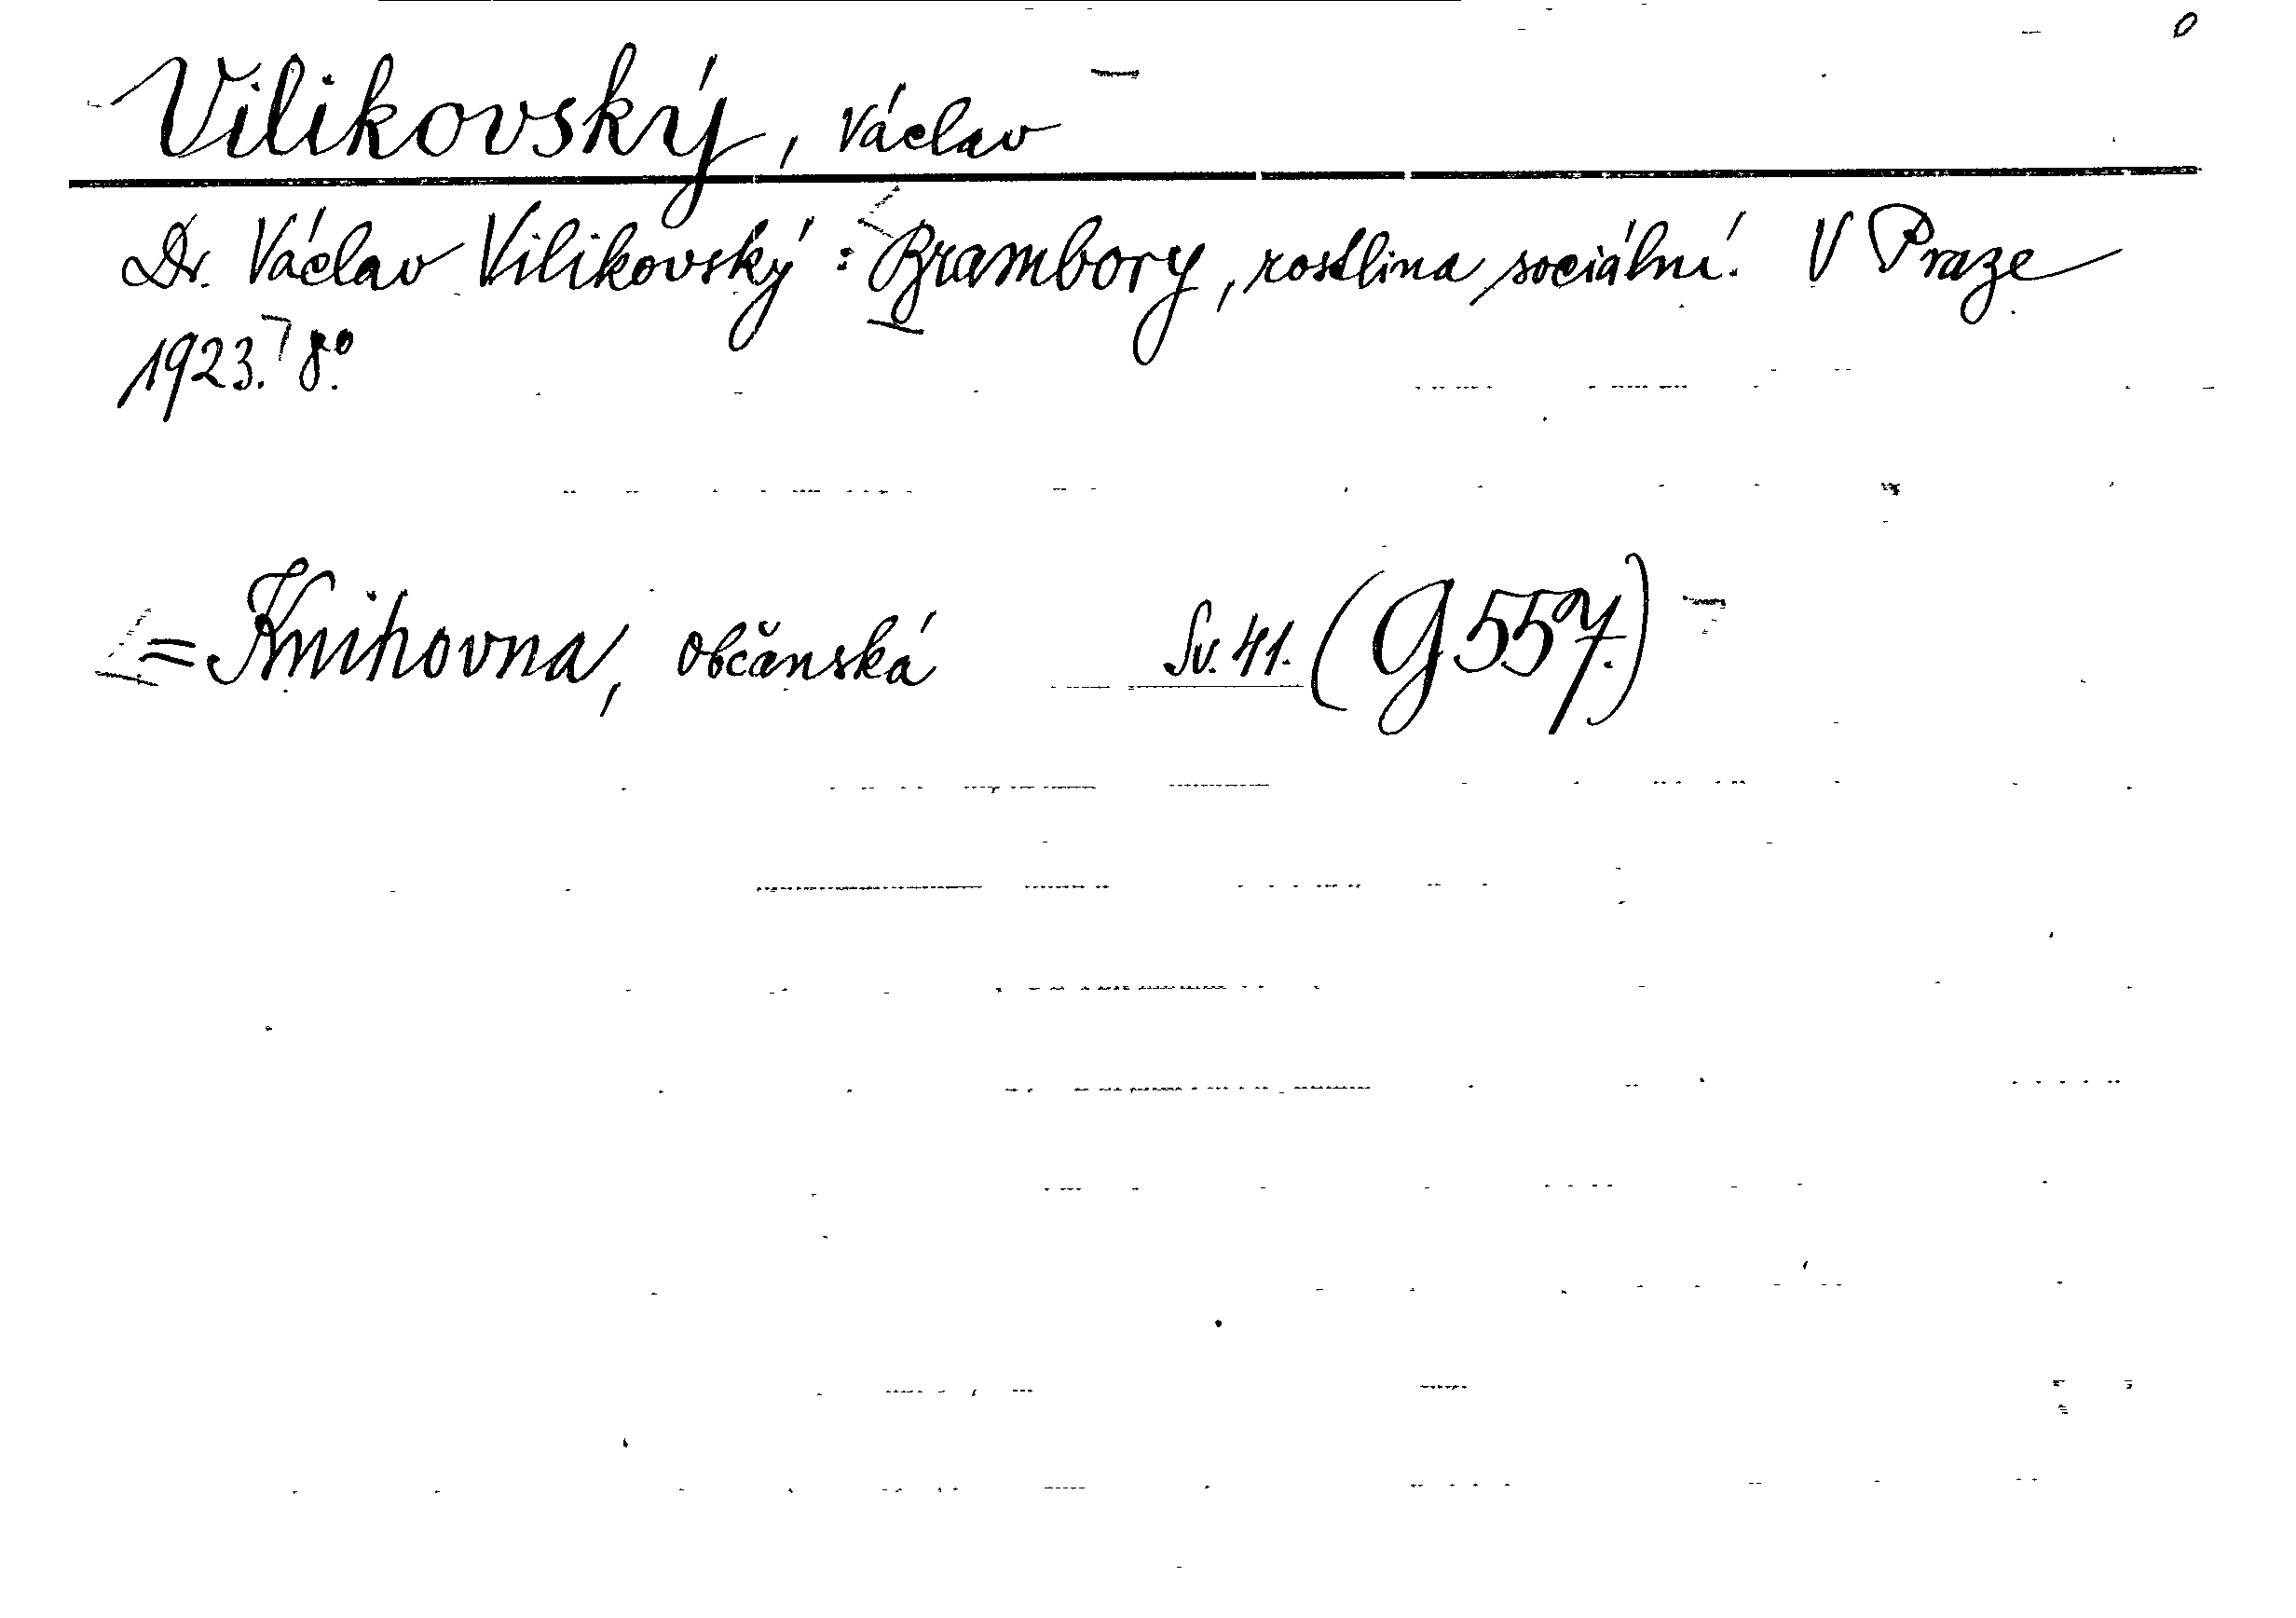 Vilikovský, Václav
Dr. Václav Vilikovský: Brambory, rostlina sociální. V Praze
1923. 8°.
= Knihovna, Občanská Sv. 41. (G 557.)